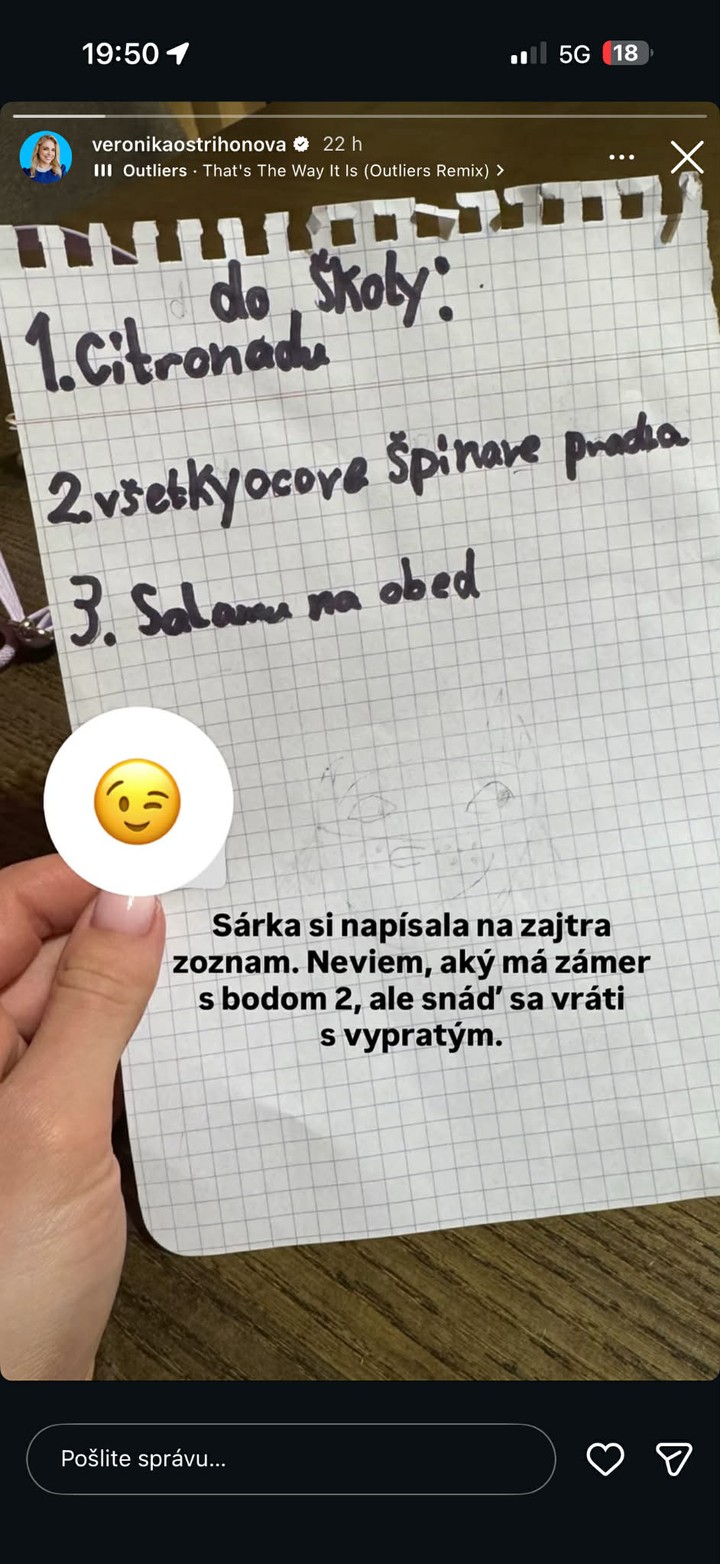 19:50
5G
18
veronikaostrihonova 22 h
Outliers · That's The Way It Is (Outliers Remix)
do Školy:
1. Citronadu
2. všetky ocove špinave
3. Salamu na obed
Sárka si napísala na zajtra
zoznam. Neviem, aký má zámer
s bodom 2, ale snáď sa vráti
s vypratým.
Pošlite správu...